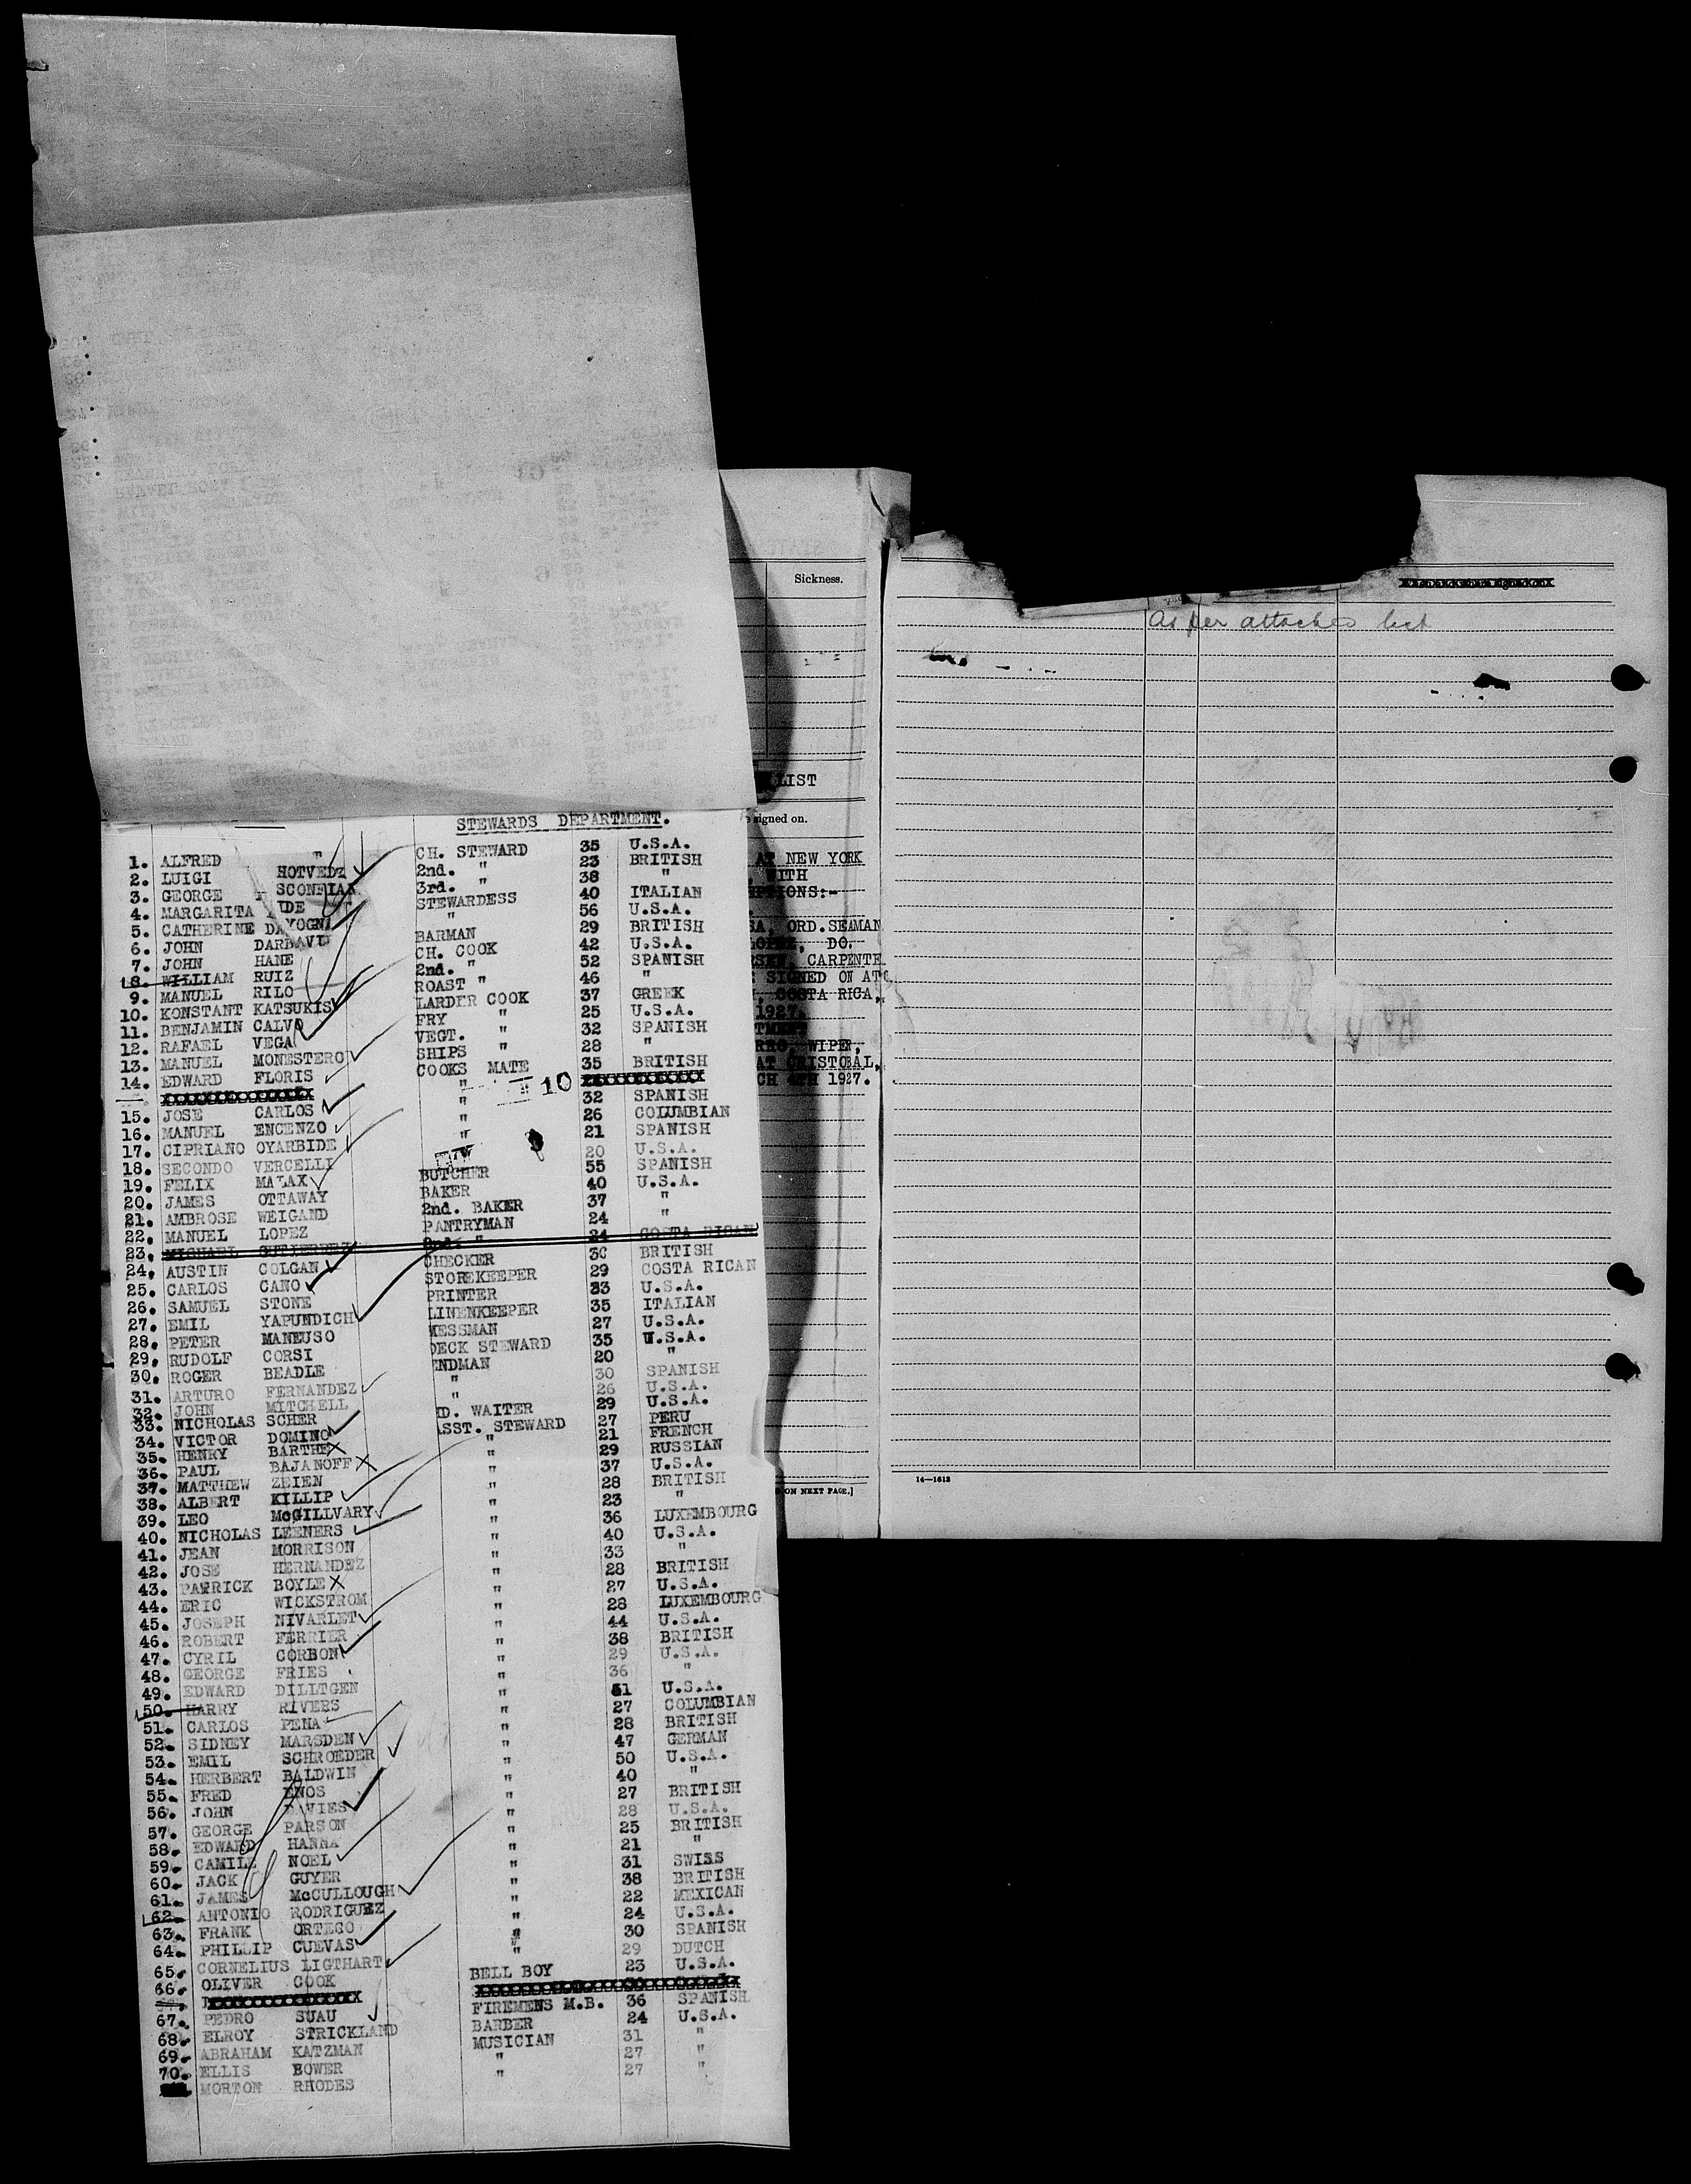 STEWARDS DEPARTMENT.
1. ALFRED HOTVEDT CH. STEWARD 35 U.S.A.
2. LUIGI 2nd. " 23 BRITISH
3. GEORGE 3rd. " 38 "
4. MARGARITA STEWARDESS 40 ITALIAN
5. CATHERINE " 56 U.S.A.
6. JOHN BARMAN 29 BRITISH
7. JOHN HANE CH. COOK 42 U.S.A.
8. WILLIAM RUIZ 2nd. " 52 SPANISH
9. MANUEL RILO ROAST " 46 "
10. KONSTANT KATSUKIS LARDER COOK 37 GREEK
11. BENJAMIN CALVO FRY " 25 U.S.A.
12. RAFAEL VEGA VEGT. " 32 SPANISH
13. MANUEL MONESTERO SHIPS " 28 "
14. EDWARD FLORIS COOKS MATE 35 BRITISH
" 10
15. JOSE CARLOS " 32 SPANISH
16. MANUEL ENCENZO " 26 COLUMBIAN
17. CIPRIANO OYARBIDE " 21 SPANISH
18. SECONDO VERCELLI 20 U.S.A.
19. FELIX MALAX BUTCHER 55 SPANISH
20. JAMES OTTAWAY BAKER 40 U.S.A.
21. AMBROSE WEIGAND 2nd. BAKER 37 "
22. MANUEL LOPEZ PANTRYMAN 24 "
23. MICHAEL GUTIERREZ 2nd. " 24 COSTA RICAN
24. AUSTIN COLGAN CHECKER 30 BRITISH
25. CARLOS CANO STOREKEEPER 29 COSTA RICAN
26. SAMUEL STONE PRINTER 33 U.S.A.
27. EMIL YAPUNDICH LINENKEEPER 35 ITALIAN
28. PETER MANEUSO MESSMAN 27 U.S.A.
29. RUDOLF CORSI DECK STEWARD 35 U.S.A.
30. ROGER BEADLE ENDMAN 20 "
31. ARTURO FERNANDEZ " 30 SPANISH
32. JOHN MITCHELL " 26 U.S.A.
33. NICHOLAS SCHER D. WAITER 29 U.S.A.
34. VICTOR DOMINO ASST. STEWARD 27 PERU
35. HENRY BARTHE " 21 FRENCH
36. PAUL BAJANOFF " 29 RUSSIAN
37. MATTHEW ZEIEN " 37 U.S.A.
38. ALBERT KILLIP " 28 BRITISH
39. LEO McGILLVARY " 23 "
40. NICHOLAS LEENERS " 36 LUXEMBOURG
41. JEAN MORRISON " 40 U.S.A.
42. JOSE HERNANDEZ " 33 "
43. PATRICK BOYLE " 28 BRITISH
44. ERIC WICKSTROM " 27 U.S.A.
45. JOSEPH NIVARLET " 28 LUXEMBOURG
46. ROBERT FERRIER " 44 U.S.A.
47. CYRIL CORBON " 38 BRITISH
48. GEORGE FRIES " 29 U.S.A.
49. EDWARD DILLTGEN " 36 "
50. HARRY RIVERS " 31 U.S.A.
51. CARLOS PENA " 27 COLUMBIAN
52. SIDNEY MARSDEN " 28 BRITISH
53. EMIL SCHROEDER " 47 GERMAN
54. HERBERT BALDWIN " 50 U.S.A.
55. FRED ENOS " 40 "
56. JOHN DAVIES " 27 BRITISH
57. GEORGE PARSON " 28 U.S.A.
58. EDWARD HANNA " 25 BRITISH
59. CAMILE NOEL " 21 "
60. JACK GUYER " 31 SWISS
61. JAMES McCULLOUGH " 38 BRITISH
62. ANTONIO RODRIGUEZ " 22 MEXICAN
63. FRANK ORTEGO " 24 U.S.A.
64. PHILLIP CUEVAS " 30 SPANISH
65. CORNELIUS LIGTHART " 29 DUTCH
66. OLIVER COOK BELL BOY 23 U.S.A.
67. PEDRO SUAU FIREMENS M.B. 36 SPANISH
68. ELROY STRICKLAND BARBER 24 U.S.A.
69. ABRAHAM KATZMAN MUSICIAN 31 "
70. ELLIS BOWER " 27 "
MORTON RHODES " 27 "
Sickness.
LIST
signed on.
AT NEW YORK
WITH
ORD.SEAMAN
DO.
CARPENTE
SIGNED ON AT
COSTA RICA,
1927.
WIPER,
AT CRISTOBAL,
CH 4TH 1927.
ON NEXT PAGE.]
As per attached list
14—1613